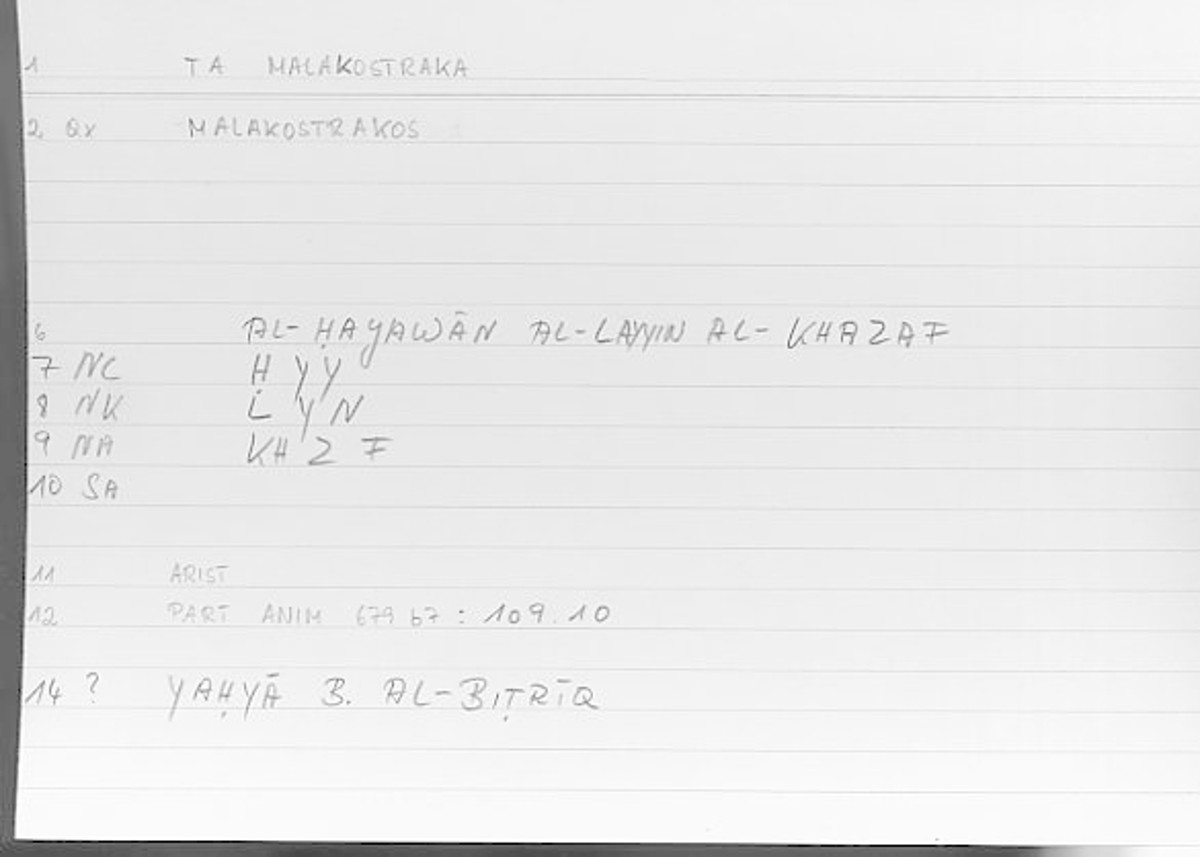 1 TA MALAKOSTRAKA
2 QX MALAKOSTRAKOS
6 AL-ḤAYAWĀN AL-LAYYIN AL-KHAZAF
7 NC Ḥ Y Y
8 NK L Y N
9 NA KH Z F
10 SA
11 ARIST
12 PART ANIM 679 b7 : 109.10
14 ? YAḤYĀ B. AL-BIṬRĪQ